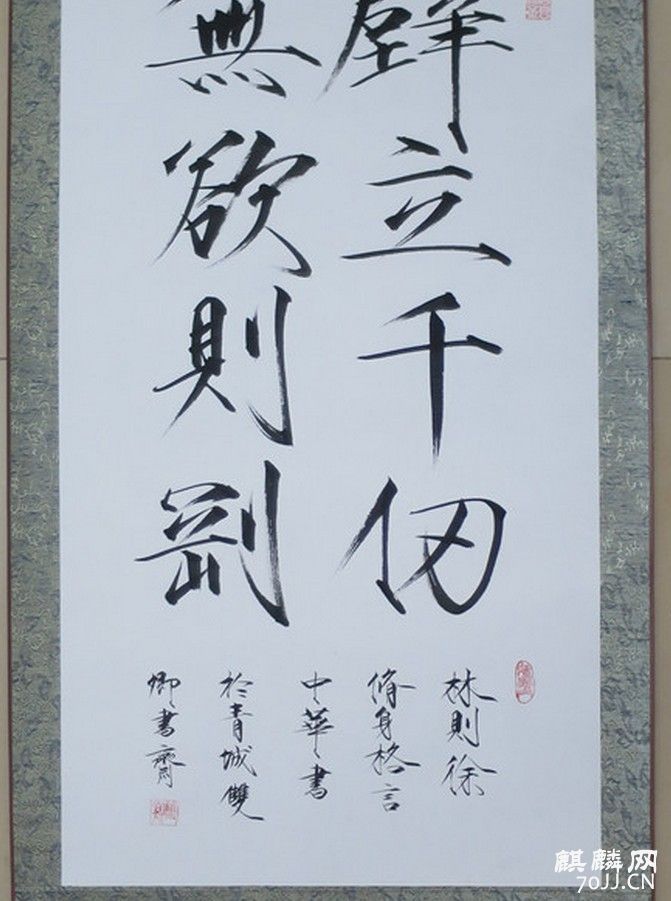 壁立千仞
無欲則剛
林則徐
脩身格言
中華書
於青城雙
卿書齋
麒麟网
70JJ.CN